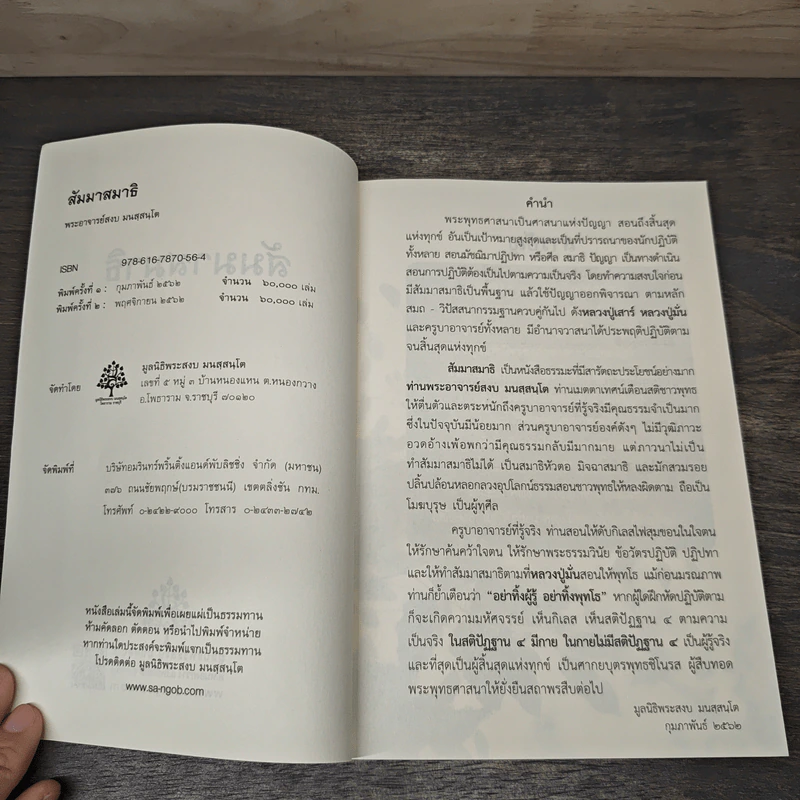 สัมมาสมาธิ
พระอาจารย์สงบ มนสฺสนฺโต
ISBN 978-616-7870-56-4
พิมพ์ครั้งที่ ๑ : กุมภาพันธ์ ๒๕๖๒ จำนวน ๖๐,๐๐๐ เล่ม
พิมพ์ครั้งที่ ๒ : พฤศจิกายน ๒๕๖๒ จำนวน ๖๐,๐๐๐ เล่ม
จัดทำโดย
มูลนิธิพระสงบ มนสฺสนฺโต
เลขที่ ๕ หมู่ ๓ บ้านหนองแหน ต.หนองกวาง
อ.โพธาราม จ.ราชบุรี ๗๐๑๒๐
จัดพิมพ์ที่ บริษัทอมรินทร์พริ้นติ้งแอนด์พับลิชชิ่ง จำกัด (มหาชน)
๓๗๖ ถนนชัยพฤกษ์(บรมราชชนนี) เขตตลิ่งชัน กทม.
โทรศัพท์ ๐-๒๔๒๒-๙๐๐๐ โทรสาร ๐-๒๔๓๓-๒๗๔๒
หนังสือเล่มนี้จัดพิมพ์เพื่อเผยแผ่เป็นธรรมทาน
ห้ามคัดลอก ตัดตอน หรือนำไปพิมพ์จำหน่าย
หากท่านใดประสงค์จะพิมพ์แจกเป็นธรรมทาน
โปรดติดต่อ มูลนิธิพระสงบ มนสฺสนฺโต
www.sa-ngob.com
คำนำ
พระพุทธศาสนาเป็นศาสนาแห่งปัญญา สอนถึงสิ้นสุด
แห่งทุกข์ อันเป็นเป้าหมายสูงสุดและเป็นที่ปรารถนาของนักปฏิบัติ
ทั้งหลาย สอนมัชฌิมาปฏิปทา หรือศีล สมาธิ ปัญญา เป็นทางดำเนิน
สอนการปฏิบัติต้องเป็นไปตามความเป็นจริง โดยทำความสงบใจก่อน
มีสัมมาสมาธิเป็นพื้นฐาน แล้วใช้ปัญญาออกพิจารณา ตามหลัก
สมถ - วิปัสสนากรรมฐานควบคู่กันไป ดังหลวงปู่เสาร์ หลวงปู่มั่น
และครูบาอาจารย์ทั้งหลาย มีอำนาจวาสนาได้ประพฤติปฏิบัติตาม
จนสิ้นสุดแห่งทุกข์
สัมมาสมาธิ เป็นหนังสือธรรมะที่มีสารัตถะประโยชน์อย่างมาก
ท่านพระอาจารย์สงบ มนสฺสนฺโต ท่านเมตตาเทศน์เตือนสติชาวพุทธ
ให้ตื่นตัวและตระหนักถึงครูบาอาจารย์ที่รู้จริงมีคุณธรรมจำเป็นมาก
ซึ่งในปัจจุบันมีน้อยมาก ส่วนครูบาอาจารย์องค์ดังๆ ไม่มีวุฒิภาวะ
อวดอ้างเพ้อพกว่ามีคุณธรรมกลับมีมากมาย แต่ภาวนาไม่เป็น
ทำสัมมาสมาธิไม่ได้ เป็นสมาธิหัวตอ มิจฉาสมาธิ และมักสวมรอย
ปลิ้นปล้อนหลอกลวงอุปโลกน์ธรรมสอนชาวพุทธให้หลงผิดตาม ถือเป็น
โมฆบุรุษ เป็นผู้ทุศีล
ครูบาอาจารย์ที่รู้จริง ท่านสอนให้ดับกิเลสไฟสุมขอนในใจตน
ให้รักษาค้นคว้าใจตน ให้รักษาพระธรรมวินัย ข้อวัตรปฏิบัติ ปฏิปทา
และให้ทำสัมมาสมาธิตามที่หลวงปู่มั่นสอนให้ทำพุทโธ แม้ก่อนมรณภาพ
ท่านก็ย้ำเตือนว่า “อย่าทิ้งผู้รู้ อย่าทิ้งพุทโธ” หากผู้ใดฝึกหัดปฏิบัติตาม
ก็จะเกิดความมหัศจรรย์ เห็นกิเลส เห็นสติปัฏฐาน ๔ ตามความ
เป็นจริง ในสติปัฏฐาน ๔ มีกาย ในกายไม่มีสติปัฏฐาน ๔ เป็นผู้รู้จริง
และที่สุดเป็นผู้สิ้นสุดแห่งทุกข์ เป็นศากยบุตรพุทธชิโนรส ผู้สืบทอด
พระพุทธศาสนาให้ยั่งยืนสถาพรสืบต่อไป
มูลนิธิพระสงบ มนสฺสนฺโต
กุมภาพันธ์ ๒๕๖๒